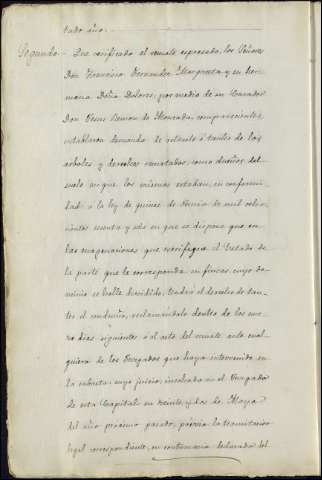 tado año.
Segundo.- Que verificado el remate expresado, los Señores
Don Francisco Fernandez Marqueta y su her-
mana Doña Dolores, por medio de su Curador
Don Jesus Ramon de Moncada, comparecientes,
establaron demanda de retracto ó tanteo de los
arboles y derechos rematados, como dueños del
suelo en que los mismos estaban, en conformi-
dad á la ley de quince de Junio de mil ocho-
cientos sesenta y seis en que se dispone que en
las enagenaciones que verifique el Estado de
la parte que le corresponda en fincas, cuyo do-
minio se halle dividido, tendrá el derecho de tan-
teo el condueño, reclamándolo dentro de los nue-
ve dias siguientes á el acto del remate ante cual-
quiera de los Juzgados que haya intervenido en
la subasta; cuyo juicio, incohado en el Juzgado
de esta Capital en veinte y dos de Mayo
del año próximo pasado, prévia la tramitacion
legal correspondiente, en contumacia declarada del